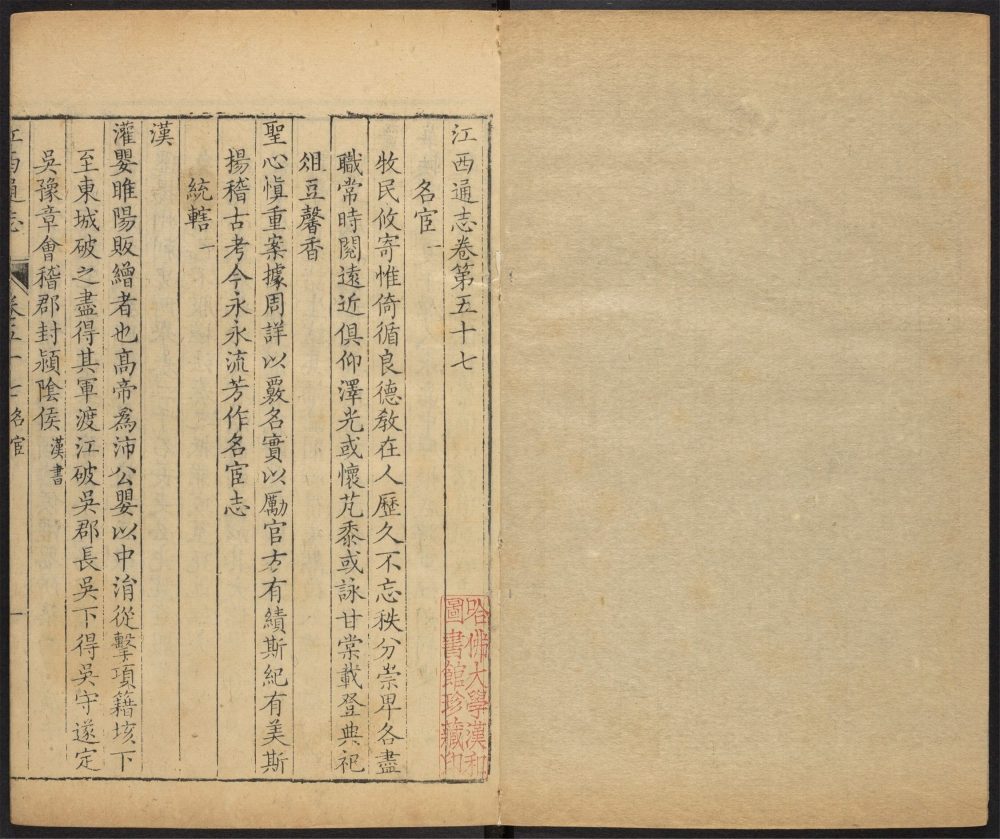 江西通志卷第五十七
名宦一
牧民攸寄惟倚循良德教在人歷久不忘秩分崇卑各盡
職常時閱遠近俱仰澤光或懷芃黍或詠甘棠載登典祀
俎豆馨香
聖心慎重案據周詳以覈名實以勵官方有績斯紀有美斯
揚稽古考今永永流芳作名宦志
統轄一
漢
灌嬰睢陽販繒者也高帝為沛公嬰以中涓從擊項籍垓下
至東城破之盡得其軍渡江破吳郡長吳下得吳守遂定
吳豫章會稽郡封潁陰侯漢書
江西通志 卷五十七名宦 一
哈佛大學漢和
圖書館珍藏印